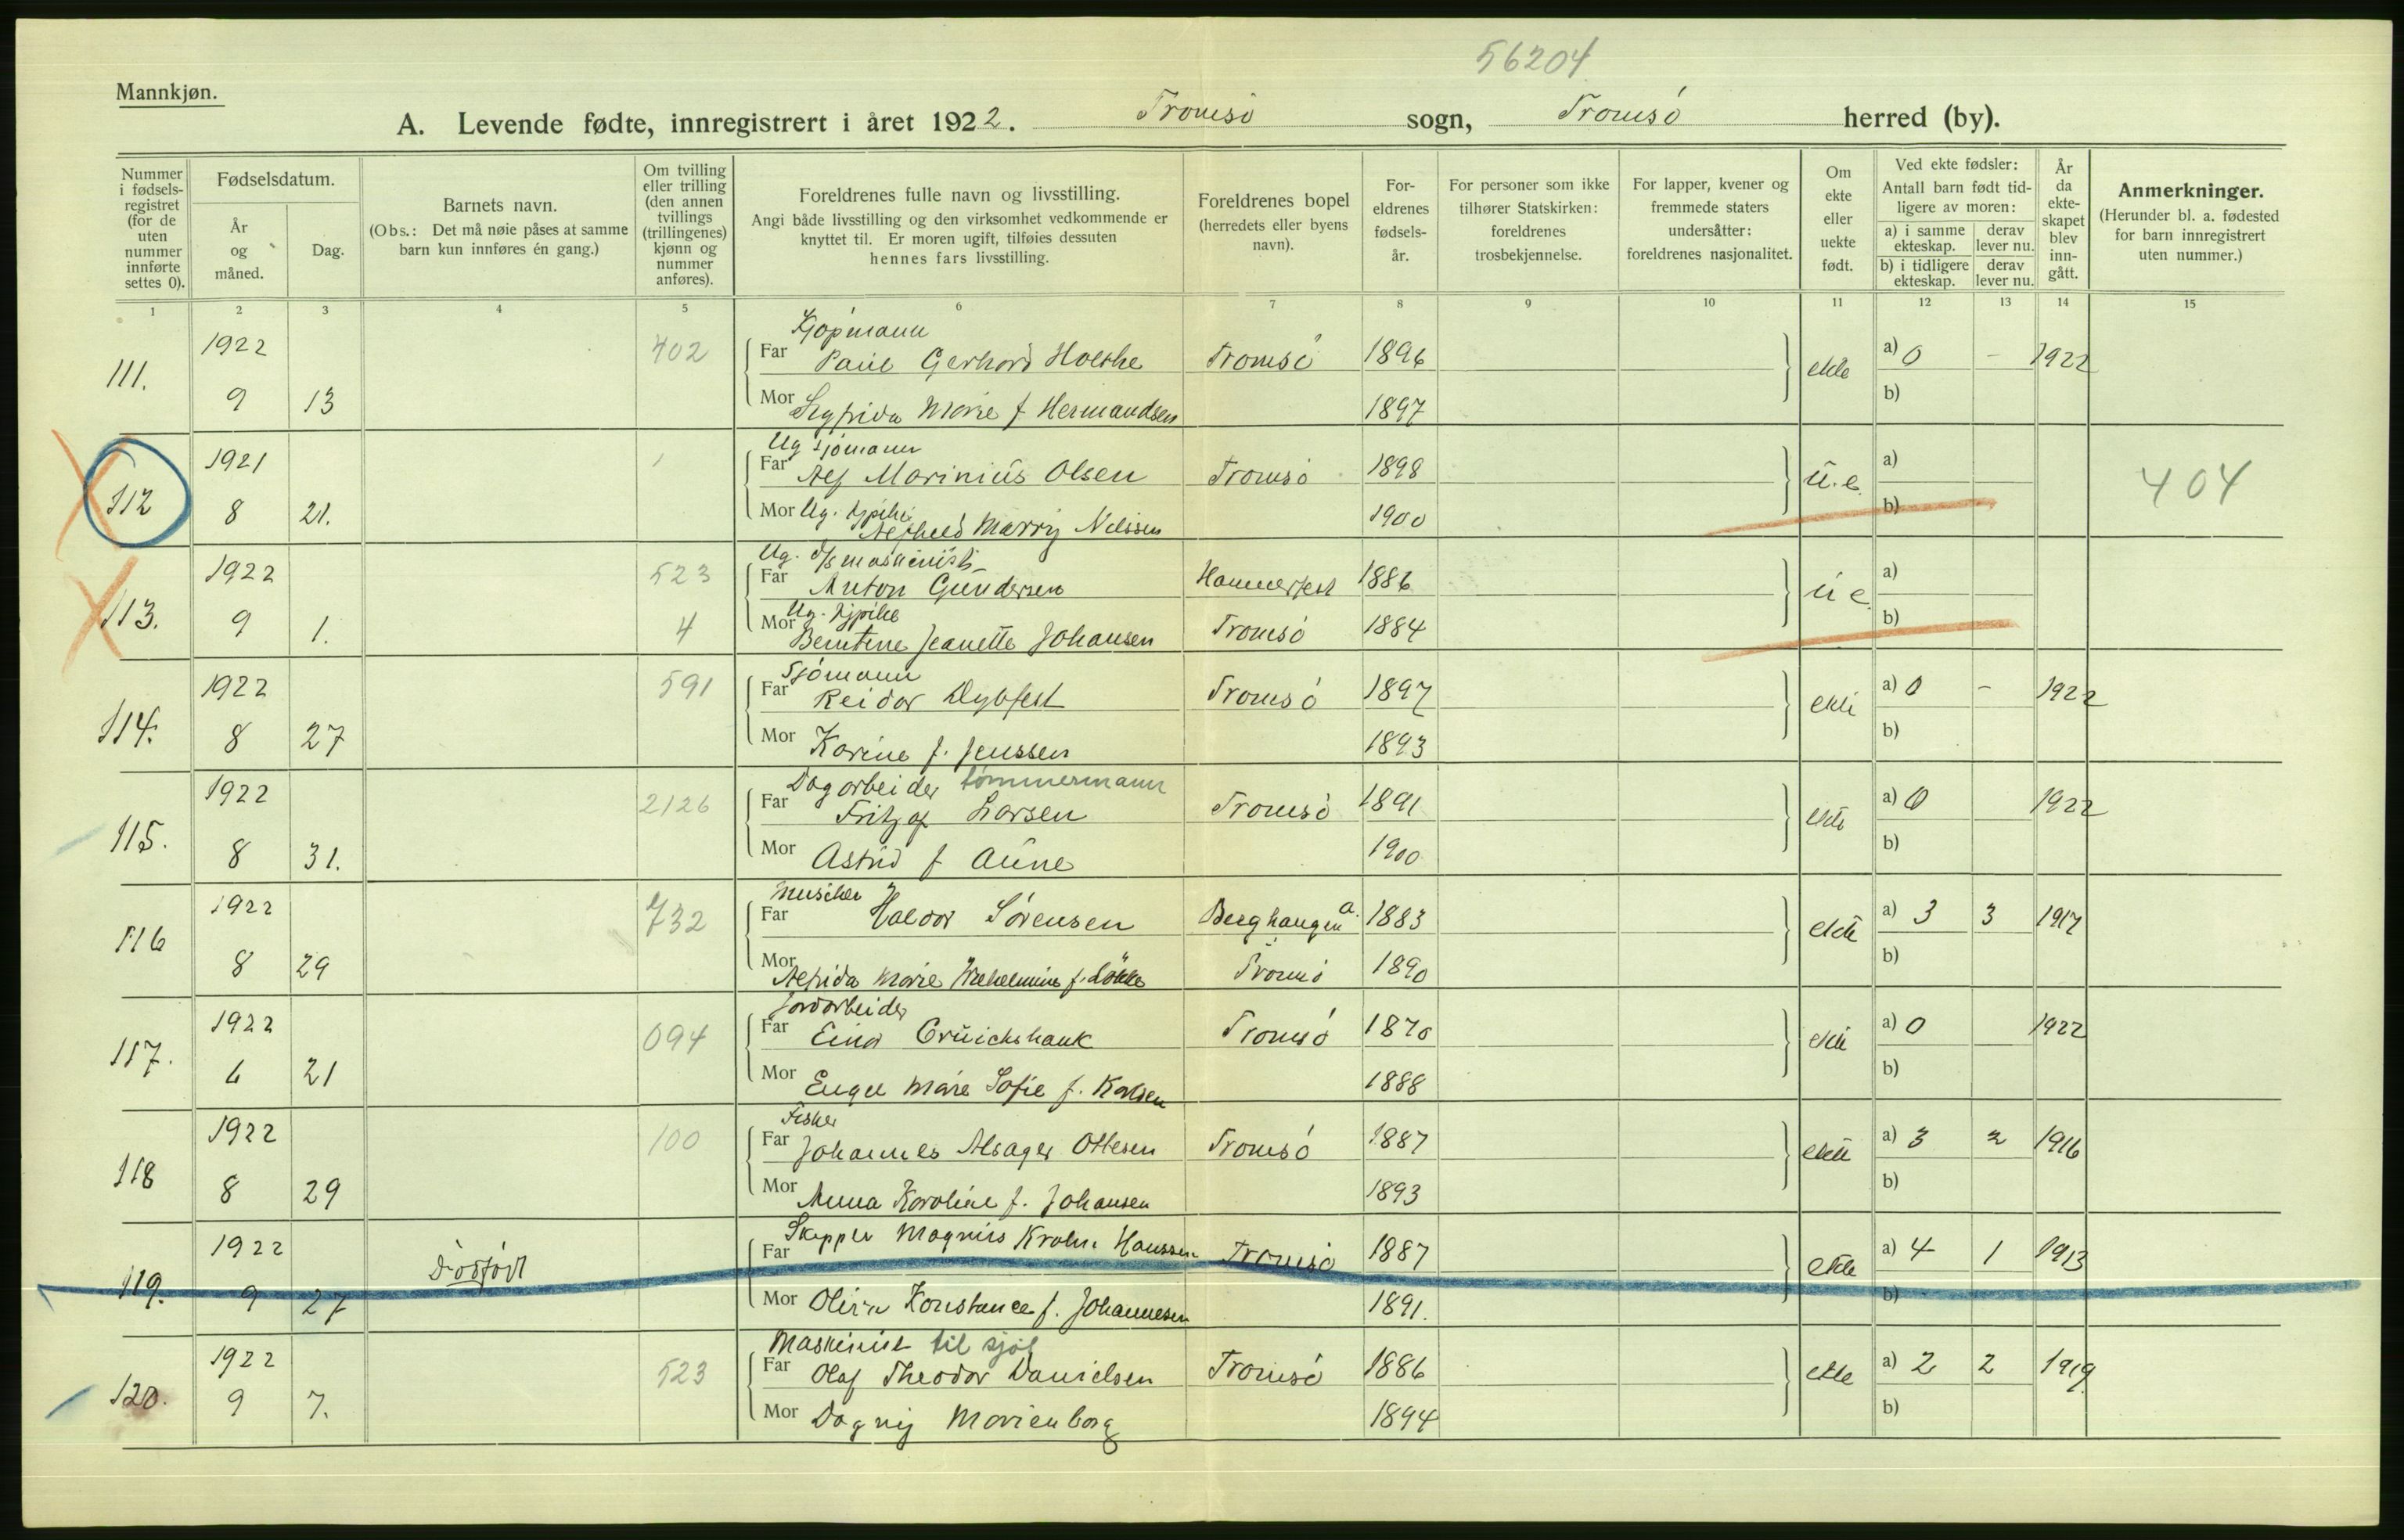 56204
Mannkjøn.
A. Levende fødte, innregistrert i året 1922. Tromsø sogn, Tromsø herred (by).
Nummer i fødselsregistret (for de uten nummer innførte settes 0).
Fødselsdatum.
År og måned.
Dag.
Barnets navn.
(Obs.: Det må nøie påses at samme barn kun innføres én gang.)
Om tvilling eller trilling (den annen tvillings (trillingenes) kjønn og nummer anføres).
Foreldrenes fulle navn og livsstilling.
Angi både livsstilling og den virksomhet vedkommende er knyttet til. Er moren ugift, tilføies dessuten hennes fars livsstilling.
Foreldrenes bopel (herredets eller byens navn).
Foreldrenes fødselsår.
For personer som ikke tilhører Statskirken: foreldrenes trosbekjennelse.
For lapper, kvener og fremmede staters undersåtter: foreldrenes nasjonalitet.
Om ekte eller uekte født.
Ved ekte fødsler:
Antall barn født tidligere av moren:
a) i samme ekteskap. derav lever nu.
b) i tidligere ekteskap. derav lever nu.
År da ekteskapet blev inngått.
Anmerkninger.
(Herunder bl. a. fødested for barn innregistrert uten nummer.)
1 2 3 4 5 6 7 8 9 10 11 12 13 14 15
Kjøpmann
111. 1922 402 Far Paul Gerhard Holthe Tromsø 1896 ekte a) 0 - 1922
9 13 Mor Sigfrida Marie f Hermandsen 1897 b)
Ug sjømann
112 1921 Far Alf Marinius Olsen Tromsø 1898 u.e. a) 404
8 21. Mor Ug. Marry Nilssen 1900 b)
Ug. maskinist
113. 1922 523 Far Anton Gundersen Hammerfest 1886 u e. a)
9 1. 4 Mor Ug. Berntine Jeanette Johansen Tromsø 1884 b)
Sjømann
114. 1922 591 Far Reidar Dybfest Tromsø 1897 ekte a) 0 - 1922
8 27 Mor Karine f. Jenssen 1893 b)
Dagarbeider tømmermann
115. 1922 2126 Far Fritjof Larsen Tromsø 1891 ekte a) 0 1922
8 31. Mor Astrid f Aune 1900 b)
116 1922 732 Far Haldor Sørensen Berghaugen a. 1883 ekte a) 3 3 1917
8 29 Mor Alfrida Marie Wilhelmine f. Løkke Tromsø 1890 b)
Jordarbeider
117. 1922 094 Far Einar Cruickshank Tromsø 1870 ekte a) 0 1922
6 21 Mor Engel Marie Sofie f. Karlsen 1888 b)
Fisker
118 1922 100 Far Johannes Alsager Ottesen Tromsø 1887 ekte a) 3 2 1916
8 29 Mor Anna Karoline f. Johansen 1893 b)
119. 1922 Dødfødt Far Skipper Magnus Krohn Hanssen Tromsø 1887 ekte a) 4 1 1913
9 27 Mor Olina Konstance f. Johannesen 1891. b)
Maskinist til sjøs
120. 1922 523 Far Olaf Theodor Danielsen Tromsø 1886 ekte a) 2 2 1919
9 7. Mor Dagny Marienborg 1894 b)